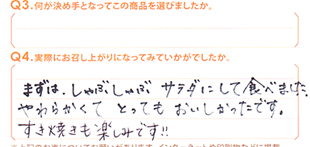 Q3.何が決め手となってこの商品を選びましたか。
Q4.実際にお召し上がりになってみていかがでしたか。
まずは、しゃぶしゃぶ サラダにして食べました。
やわらかくて とっても おいしかったです。
すき焼きも楽しみです!!